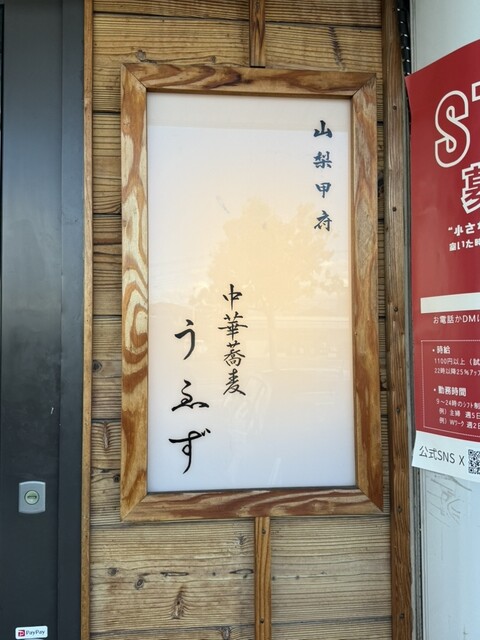 山梨甲府
中華蕎麦
うゑず
ST
募
"小さな
お電話かDMに
・時給
1100円以上（試
22時以降25%アップ
・勤務時間
9〜24時のシフト制
例）主婦 週5日
例）Wワーク 週2
公式SNS X
PayPay